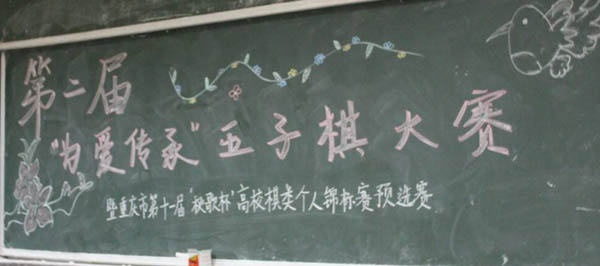 第二届
"为爱传承"五子棋大赛
暨重庆市第十一届"校歌杯"高校棋类个人锦标赛预选赛